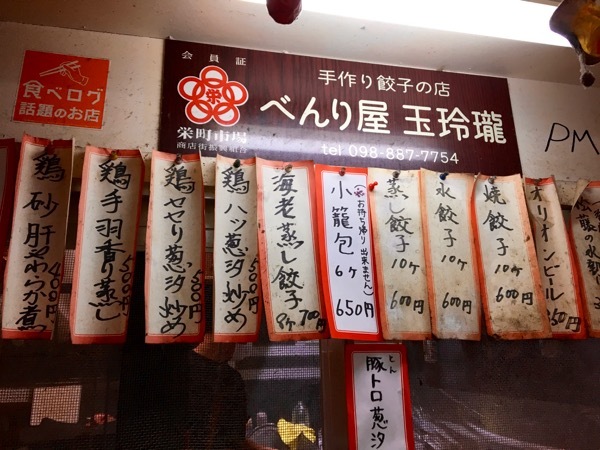 食べログ
話題のお店
会員証
栄
栄町市場
商店街振興組合
手作り餃子の店
べんり屋 玉玲瓏
tel 098-887-7754
PM
鶏砂肝やわらか煮
400円
鶏手羽香り蒸し
500円
鶏セセリ葱汐炒め
500円
鶏ハツ葱汐炒め
500円
海老蒸し餃子
8ヶ700円
小籠包
(お持ち帰り出来ません)
6ヶ
650円
蒸し餃子
10ヶ
600円
水餃子
10ヶ
600円
焼餃子
10ヶ
600円
オリオンビール
豚トロ葱汐
とん